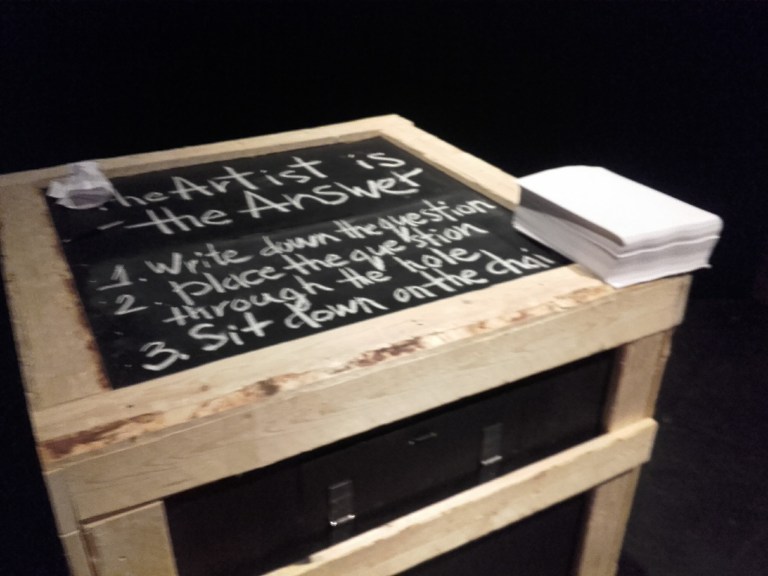 The Artist is
- the Answer
1. Write down the question
2. place the question
through the hole
3. Sit down on the chai